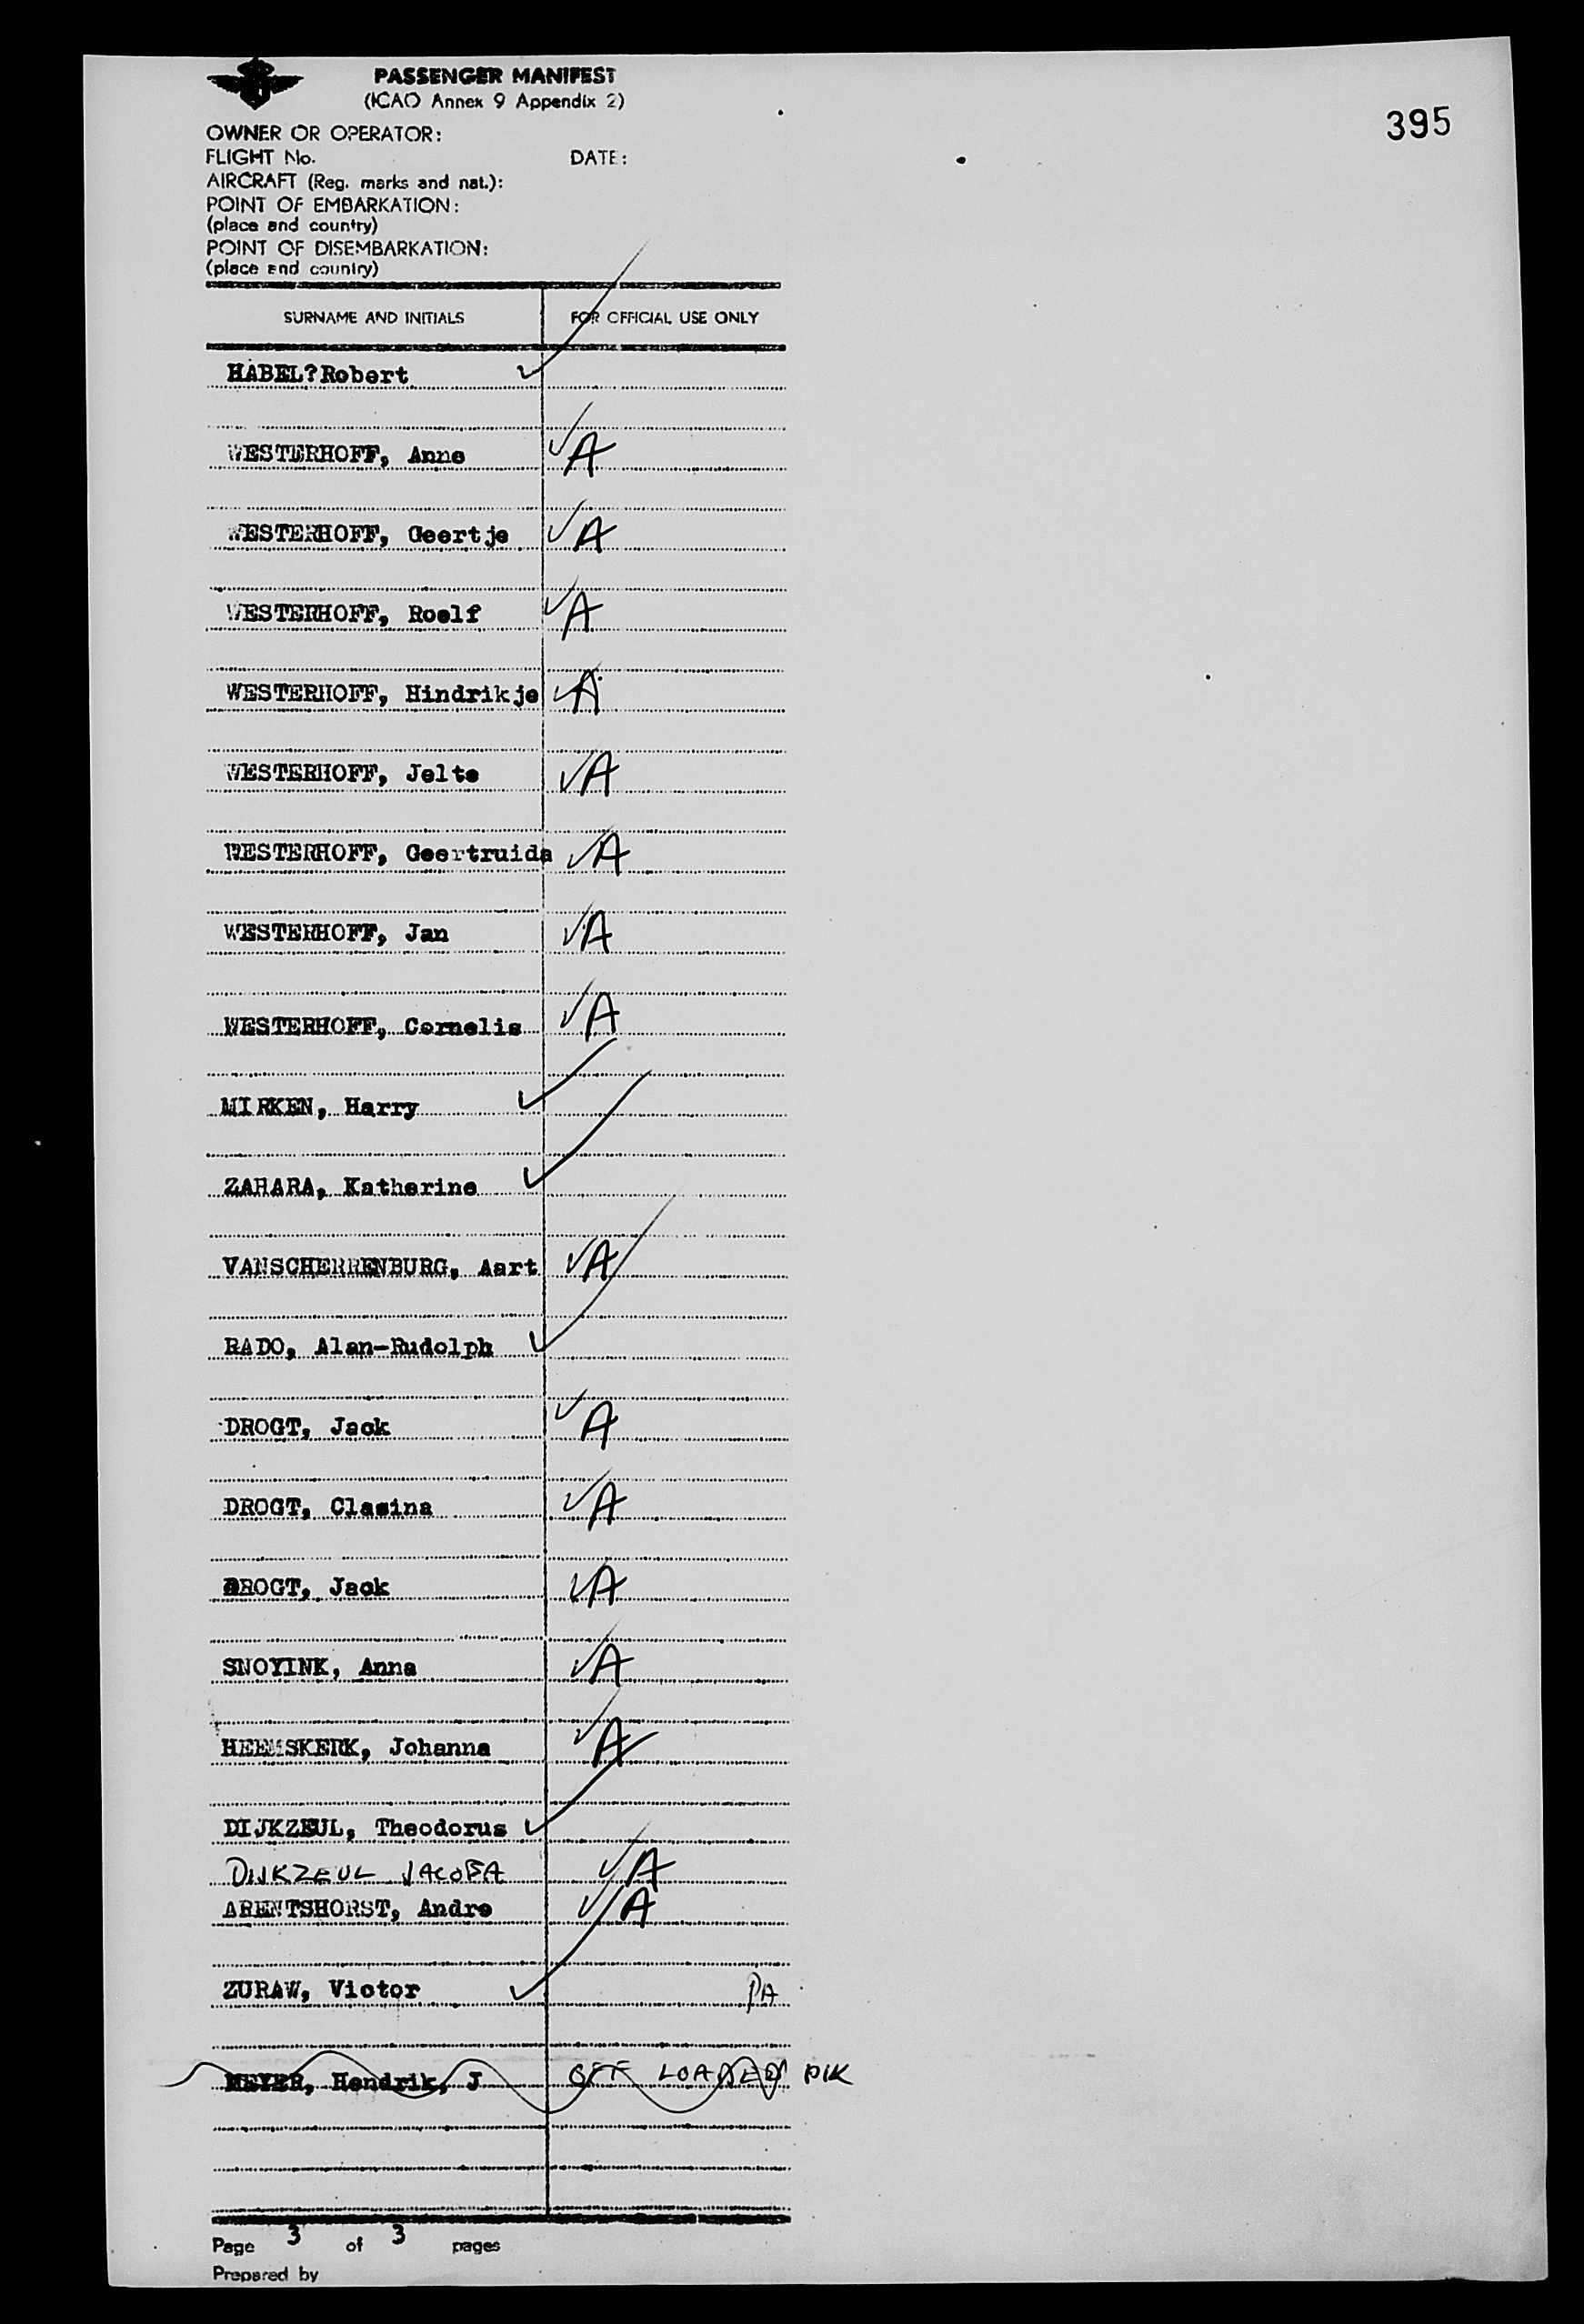 PASSENGER MANIFEST
(ICAO Annex 9 Appendix 2)
395
OWNER OR OPERATOR:
FLIGHT No. DATE:
AIRCRAFT (Reg. marks and nat.):
POINT OF EMBARKATION:
(place and country)
POINT OF DISEMBARKATION:
(place and country)
SURNAME AND INITIALS FOR OFFICIAL USE ONLY
HABEL?Robert ✓
WESTERHOFF, Anne ✓ A
WESTERHOFF, Geertje ✓ A
WESTERHOFF, Roelf ✓ A
WESTERHOFF, Hindrikje ✓ A
WESTERHOFF, Jelte ✓ A
WESTERHOFF, Geertruida ✓ A
WESTERHOFF, Jan ✓ A
WESTERHOFF, Cornelis ✓ A
MIRKEN, Harry ✓
ZAHARA, Katherine ✓
VANSCHERRENBURG, Aart ✓ A
RADO, Alan-Rudolph ✓
DROGT, Jack ✓ A
DROGT, Clasina ✓ A
DROGT, Jack ✓ A
SNOYINK, Anna ✓ A
HEEMSKERK, Johanna ✓ A
DIJKZEUL, Theodorus ✓
DIJKZEUL JACOBA ✓ A
ARENTSHORST, Andre ✓ A
ZURAW, Victor ✓ PA
MEYER, Hendrik, J OFF LOADED PIK
Page 3 of 3 pages
Prepared by